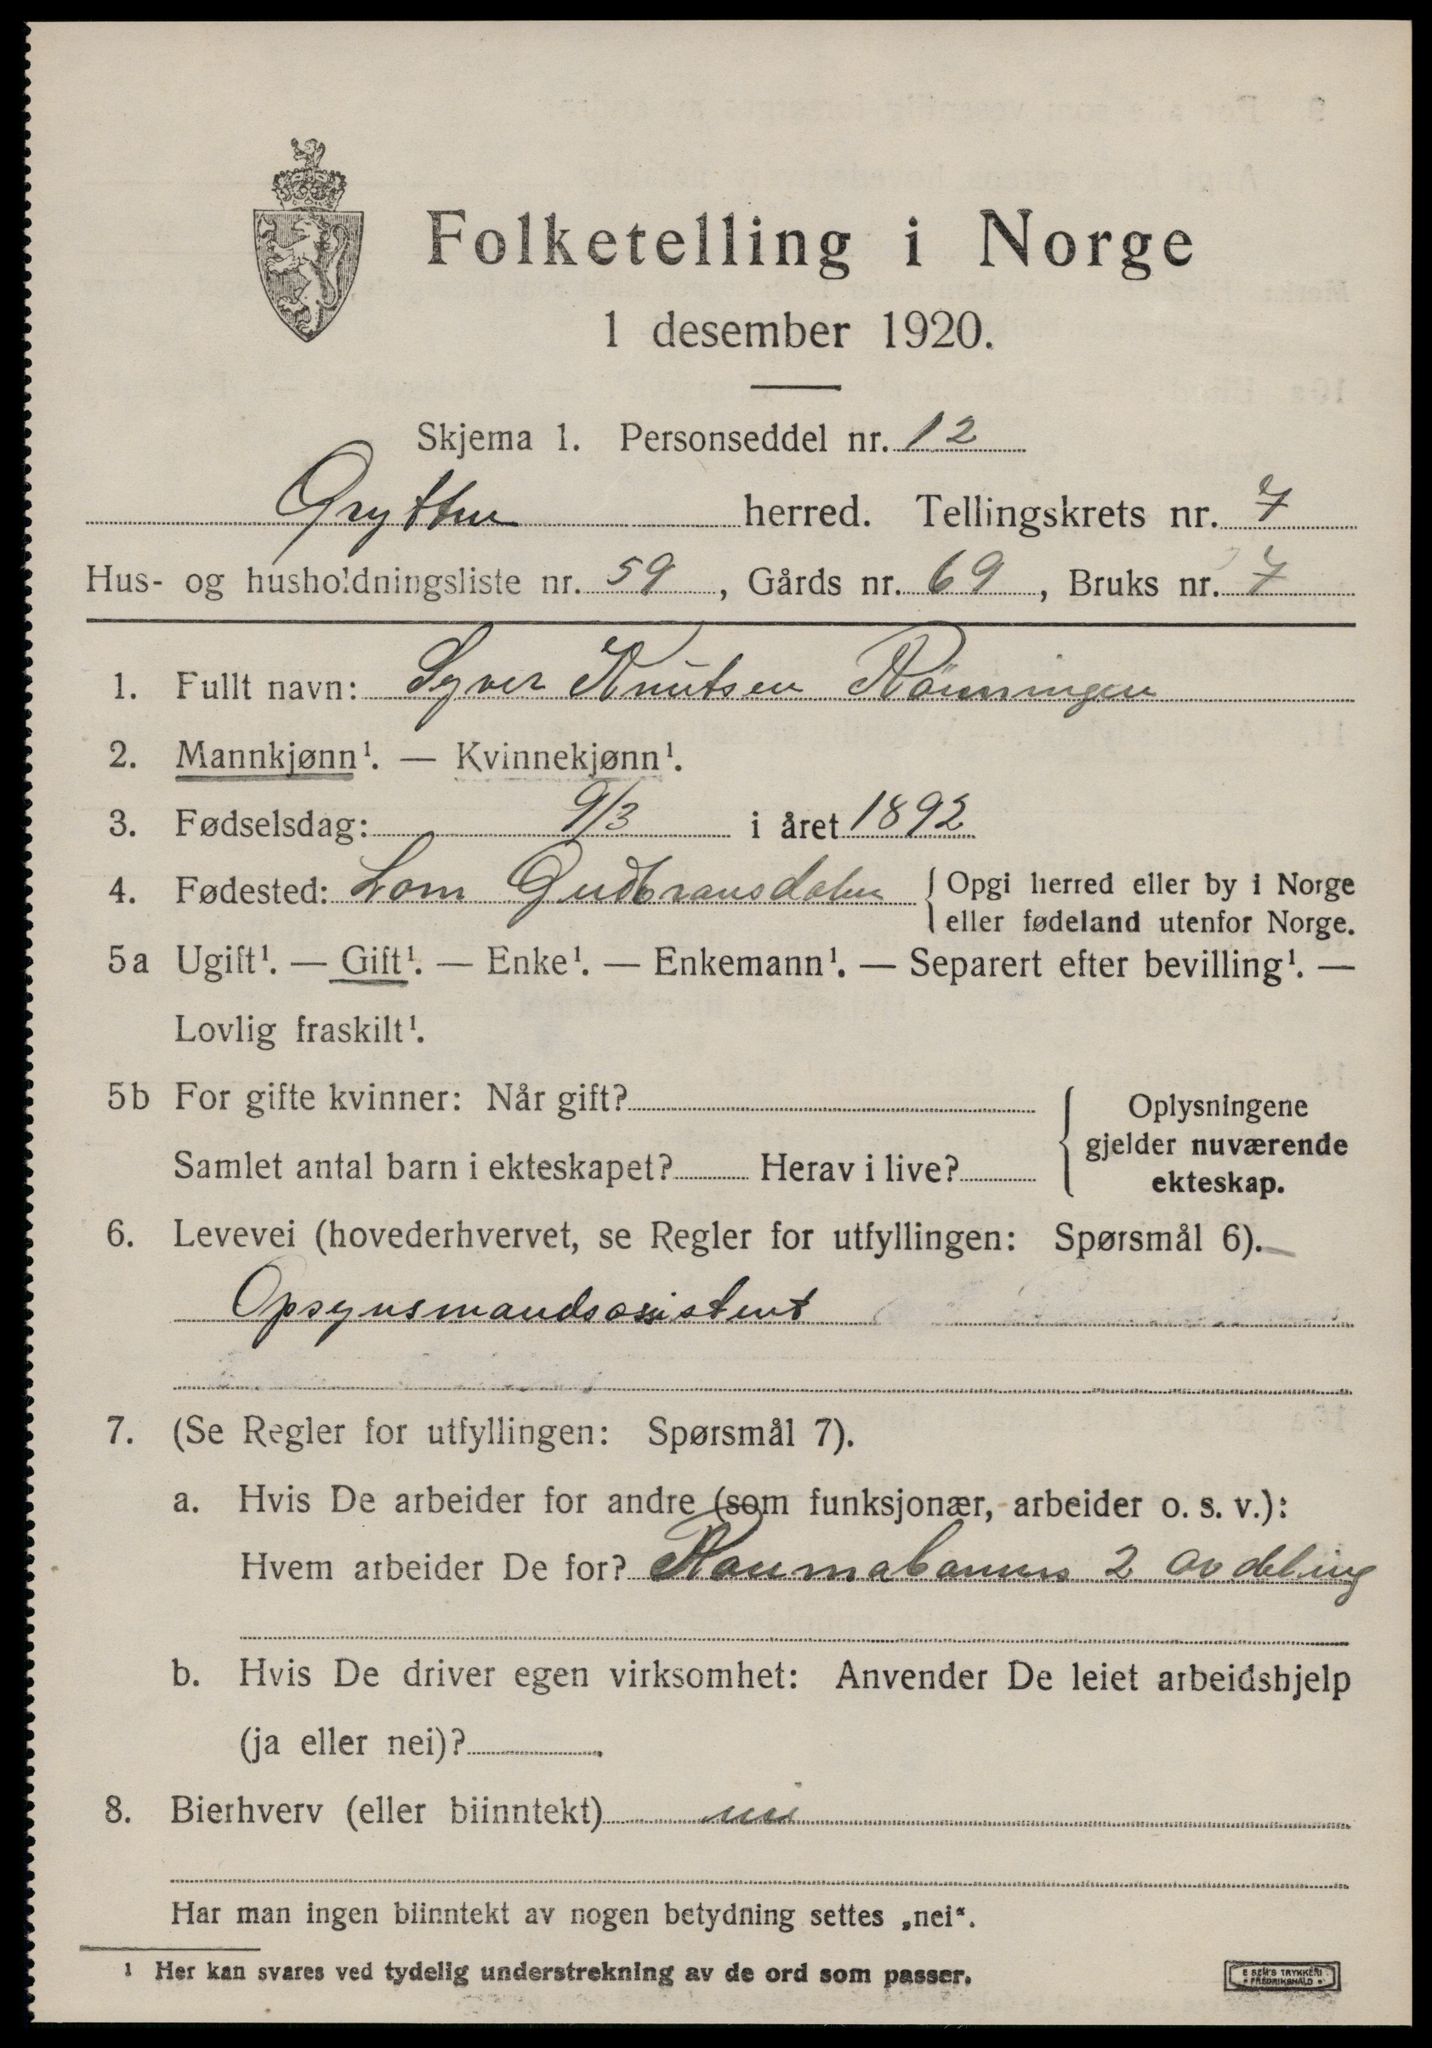 Folketelling i Norge
1 desember 1920.
Skjema 1. Personseddel nr. 12
Grytten herred. Tellingskrets nr. 7
Hus- og husholdningsliste nr. 59, Gårds nr. 69, Bruks nr. 7
1. Fullt navn: Syver Knutsen Rönningen
2. Mannkjønn¹. — Kvinnekjønn¹.
3. Fødselsdag: 9/3 i året 1892
4. Fødested: Lom Gudbransdalen { Opgi herred eller by i Norge
eller fødeland utenfor Norge.
5a Ugift¹. — Gift¹. — Enke¹. — Enkemann¹. — Separert efter bevilling¹. —
Lovlig fraskilt¹.
5b For gifte kvinner: Når gift?
Samlet antal barn i ekteskapet? Herav i live?
{ Oplysningene
gjelder nuværende
ekteskap.
6. Levevei (hovederhvervet, se Regler for utfyllingen: Spørsmål 6).
Opsynsmandsassistent
7. (Se Regler for utfyllingen: Spørsmål 7).
a. Hvis De arbeider for andre (som funksjonær, arbeider o. s. v.):
Hvem arbeider De for? Raumabanens 2 avdeling
b. Hvis De driver egen virksomhet: Anvender De leiet arbeidshjelp
(ja eller nei)?
8. Bierhverv (eller biinntekt) nei
Har man ingen biinntekt av nogen betydning settes „nei“.
¹ Her kan svares ved tydelig understrekning av de ord som passer.
E SEM'S TRYKKERI
FREDRIKSHALD